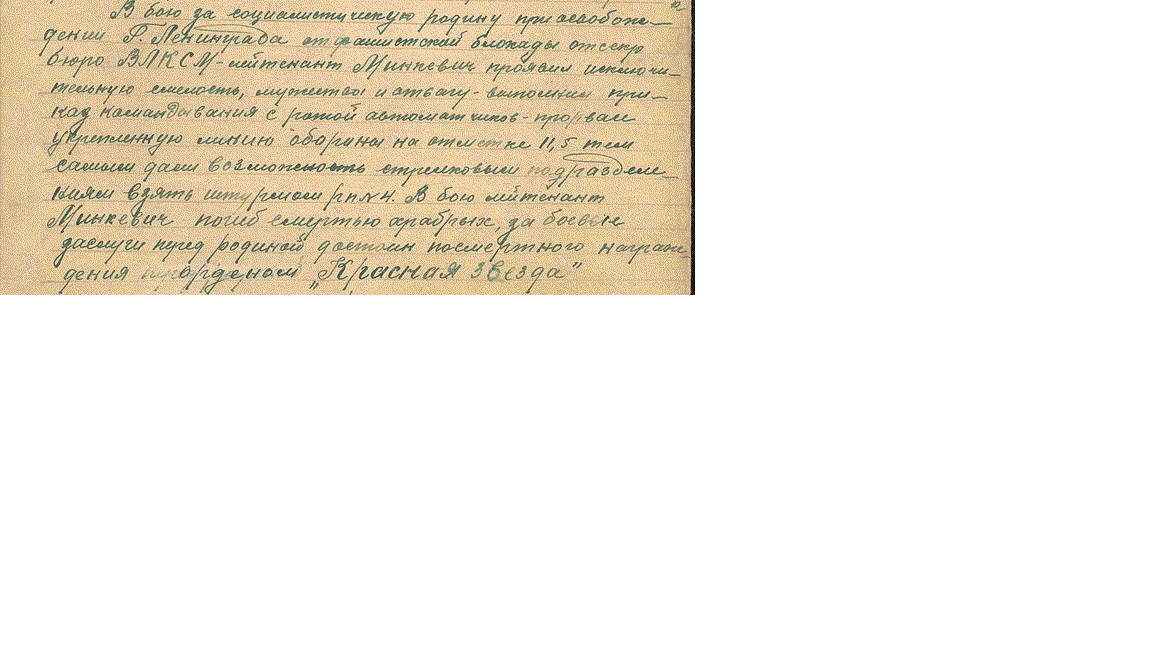 В бою за социалистическую родину при освобож-
дении Г. Ленинграда от фашистской блокады отсекр
бюро ВЛКСМ - лейтенант Минкевич проявил исключи-
тельную смелость, мужество и отвагу - выполнил при-
каз командывания с ротой автоматчиков - прорвал
укрепленную линию обороны на отметке 11,5 тем
самым дал возможность стрелковым подразделе-
ниям взять штурмом рп №4. В бою лейтенант
Минкевич погиб смертью храбрых, за боевые
заслуги перед родиной достоин посмертного награж-
дения орденом „Красная звезда"